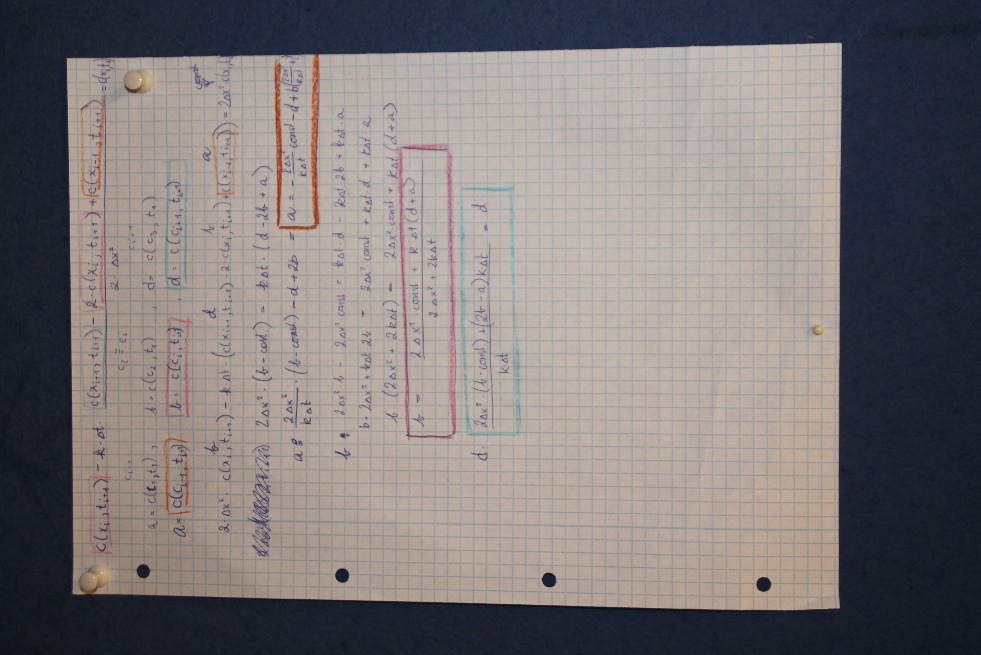 c(x_i, t_{i+1}) - k·Δt · (c(x_{i+1}, t_{i+1}) - 2·c(x_i, t_{i+1}) + c(x_{i-1}, t_{i+1})) / (2·Δx²) = c(x_i, t_i)
c_{i-1} c_2 ≙ c_i c_{i+1}
a = c(c_1, t_1), b = c(c_2, t_1), d = c(c_3, t_1)
a = c(c_{i-1}, t_{i+1}) b = c(c_i, t_{i+1}), d = c(c_{i+1}, t_{i+1})
b d b a const
2·Δx² · c(x_i, t_{i+1}) - k·Δt (c(x_{i+1}, t_{i+1}) - 2·c(x_i, t_{i+1}) + c(x_{i-1}, t_{i+1})) = 2Δx² c(x_i, t_i)
2Δx² · (b - const) = kΔt · (d - 2b + a)
a = 2Δx²/kΔt · (b - const) - d + 2b = a = - 2Δx²/kΔt const - d + b
b 2Δx² · b - 2Δx² const = kΔt · d - kΔt 2b + kΔt · a
b · 2Δx² + kΔt 2b = 2Δx² const + kΔt · d + kΔt a
b (2Δx² + 2kΔt) = 2Δx² const + kΔt (d + a)
b = (2Δx² const + kΔt (d + a)) / (2Δx² + 2kΔt)
d: (2Δx² · (b - const) + (2b - a) kΔt) / kΔt = d